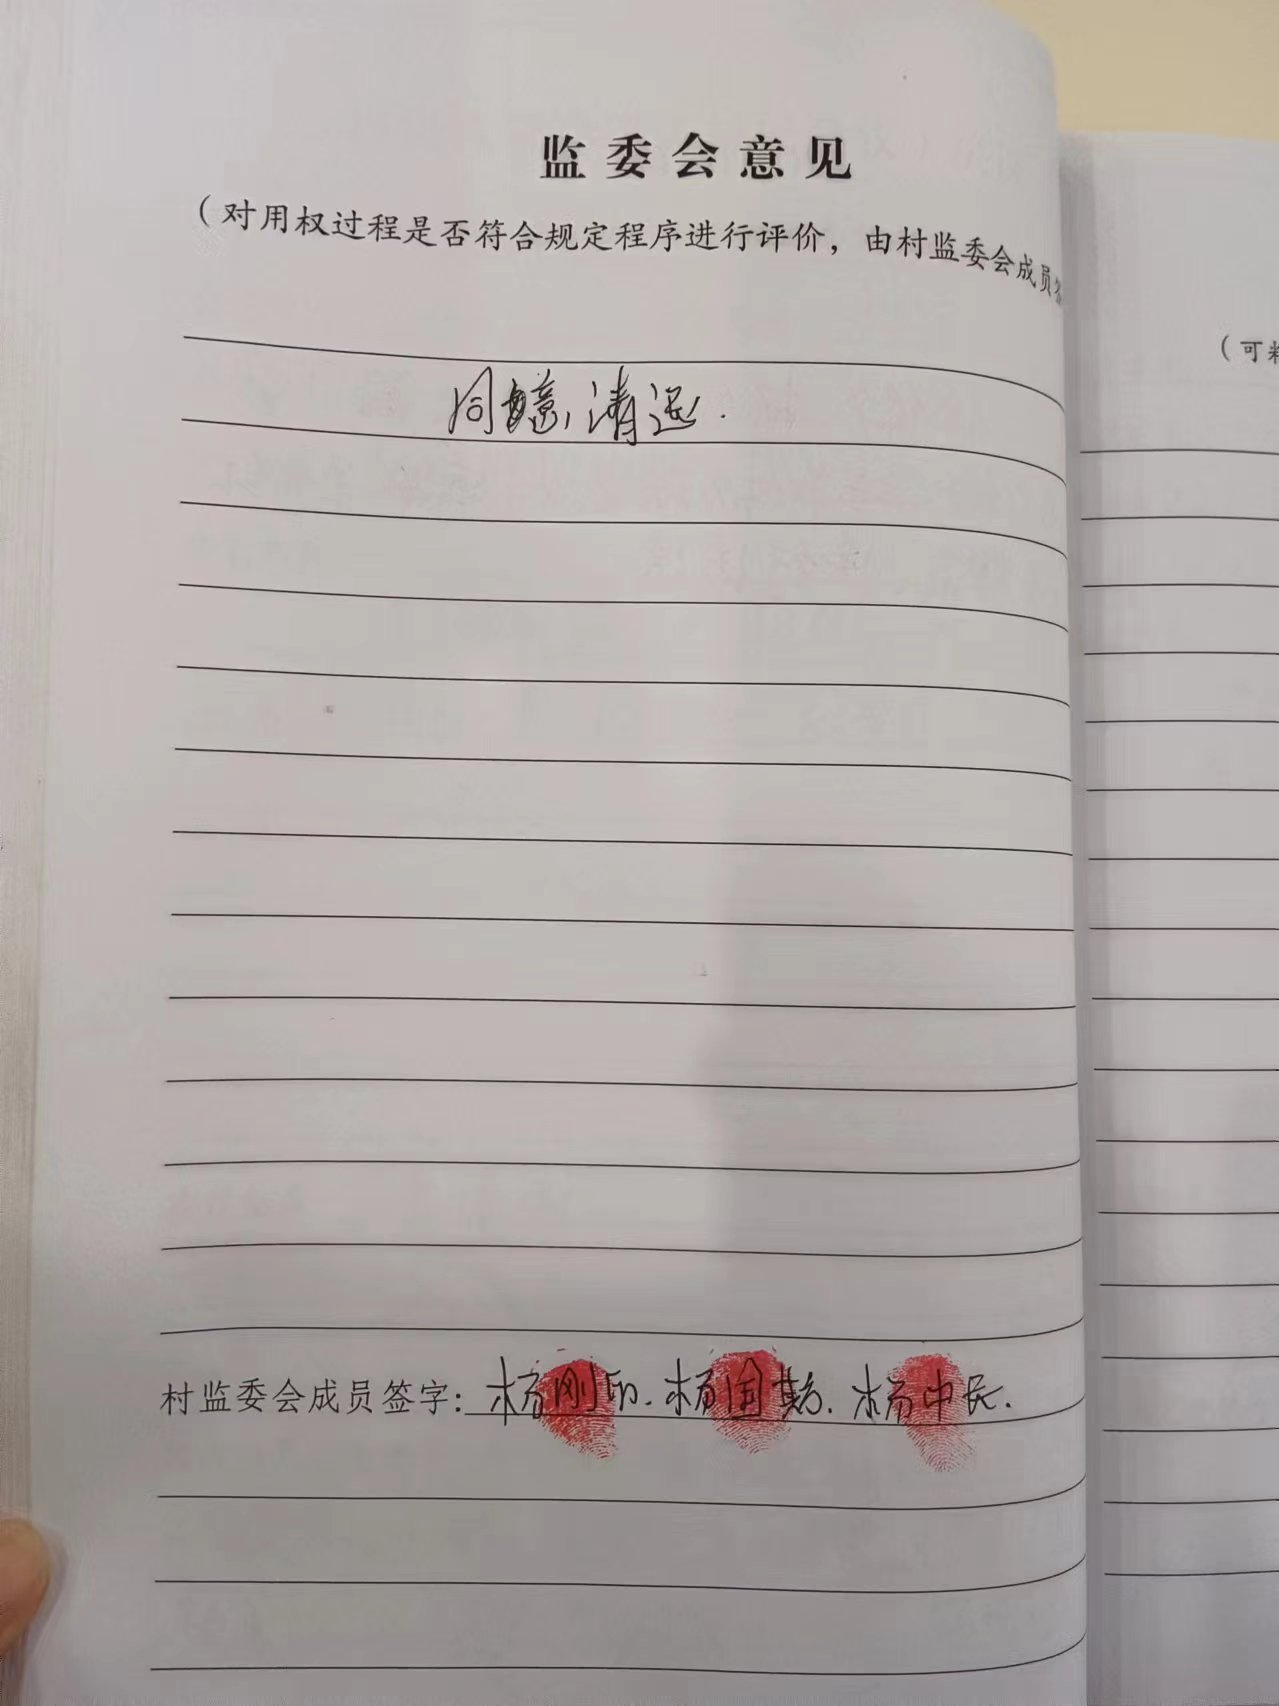 监委会意见
（对用权过程是否符合规定程序进行评价，由村监委会成员签
同意，清远.
村监委会成员签字：杨刚印.杨国勤.杨中民.
（可粘